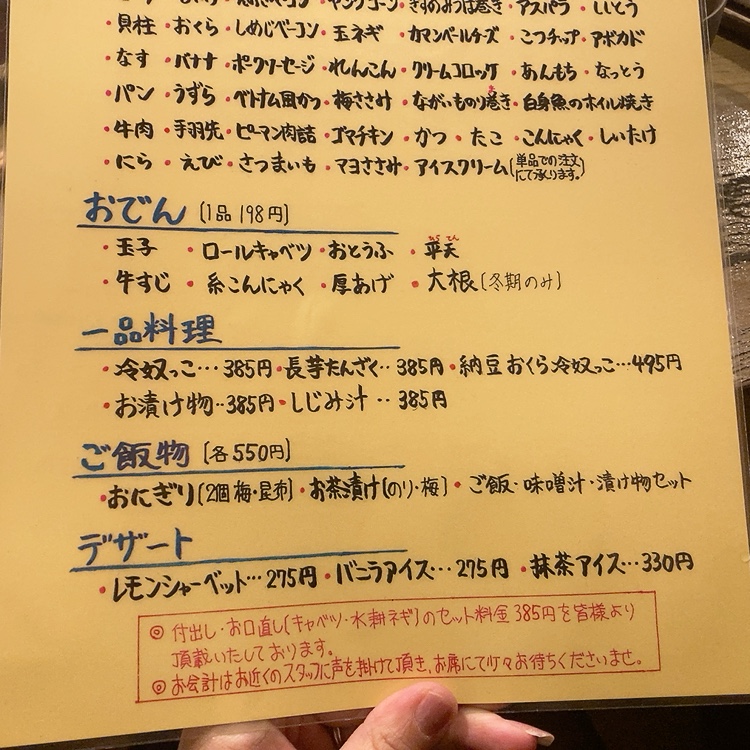 ・アスパラ・ししとう
・貝柱・おくら・しめじベーコン・玉ネギ・カマンベールチーズ・こつチップ・アボカド
・なす・バナナ・ポークソーセージ・れんこん・クリームコロッケ・あんもち・なっとう
・パン・うずら・ベトナム風かつ・梅ささみ・ながいものり巻き・白身魚のホイル焼き
・牛肉・手羽先・ピーマン肉詰・ゴマチキン・かつ・たこ・こんにゃく・しいたけ
・にら・えび・さつまいも・マヨささみ・アイスクリーム(単品での注文にて承ります。)
おでん (1品198円)
・玉子・ロールキャベツ・おとうふ・平天
・牛すじ・糸こんにゃく・厚あげ・大根(冬期のみ)
一品料理
・冷奴っこ…385円・長芋たんざく‥385円・納豆おくら冷奴っこ…495円
・お漬け物‥385円・しじみ汁‥385円
ご飯物 (各550円)
・おにぎり(2個 梅・昆布)・お茶漬け(のり・梅)・ご飯・味噌汁・漬け物セット
デザート
・レモンシャーベット…275円・バニラアイス…275円・抹茶アイス…330円
◎付出し・お口直し(キャベツ・水耕ネギ)のセット料金385円を皆様より
頂戴いたしております。
◎お会計はお近くのスタッフに声を掛けて頂き、お席にて少々お待ちくださいませ。